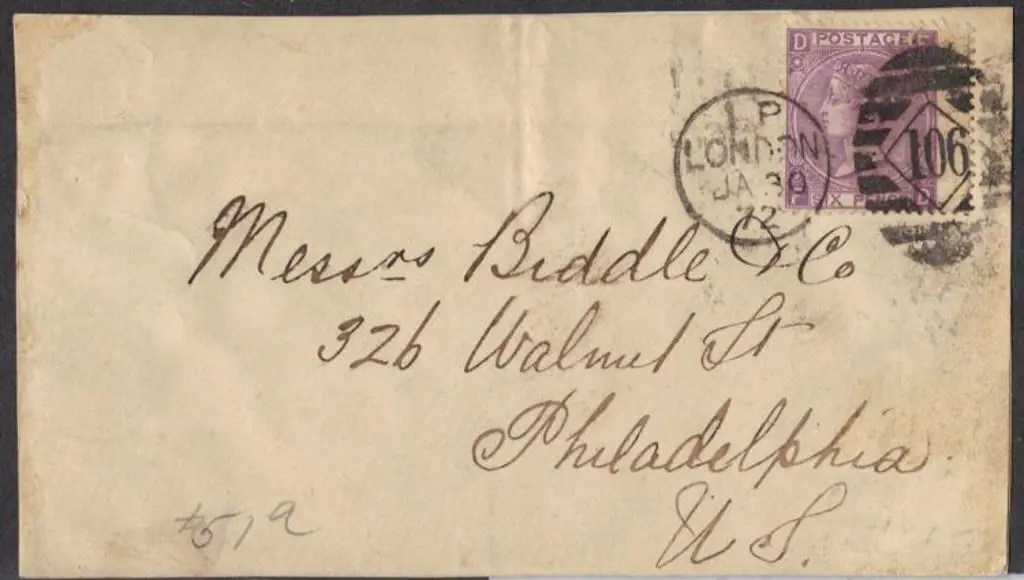 D POSTAGE F
P
LONDON
JA 30
72
106
SIX PENCE
Messrs Biddle & Co
326 Walnut St
Philadelphia
U S.
#51a